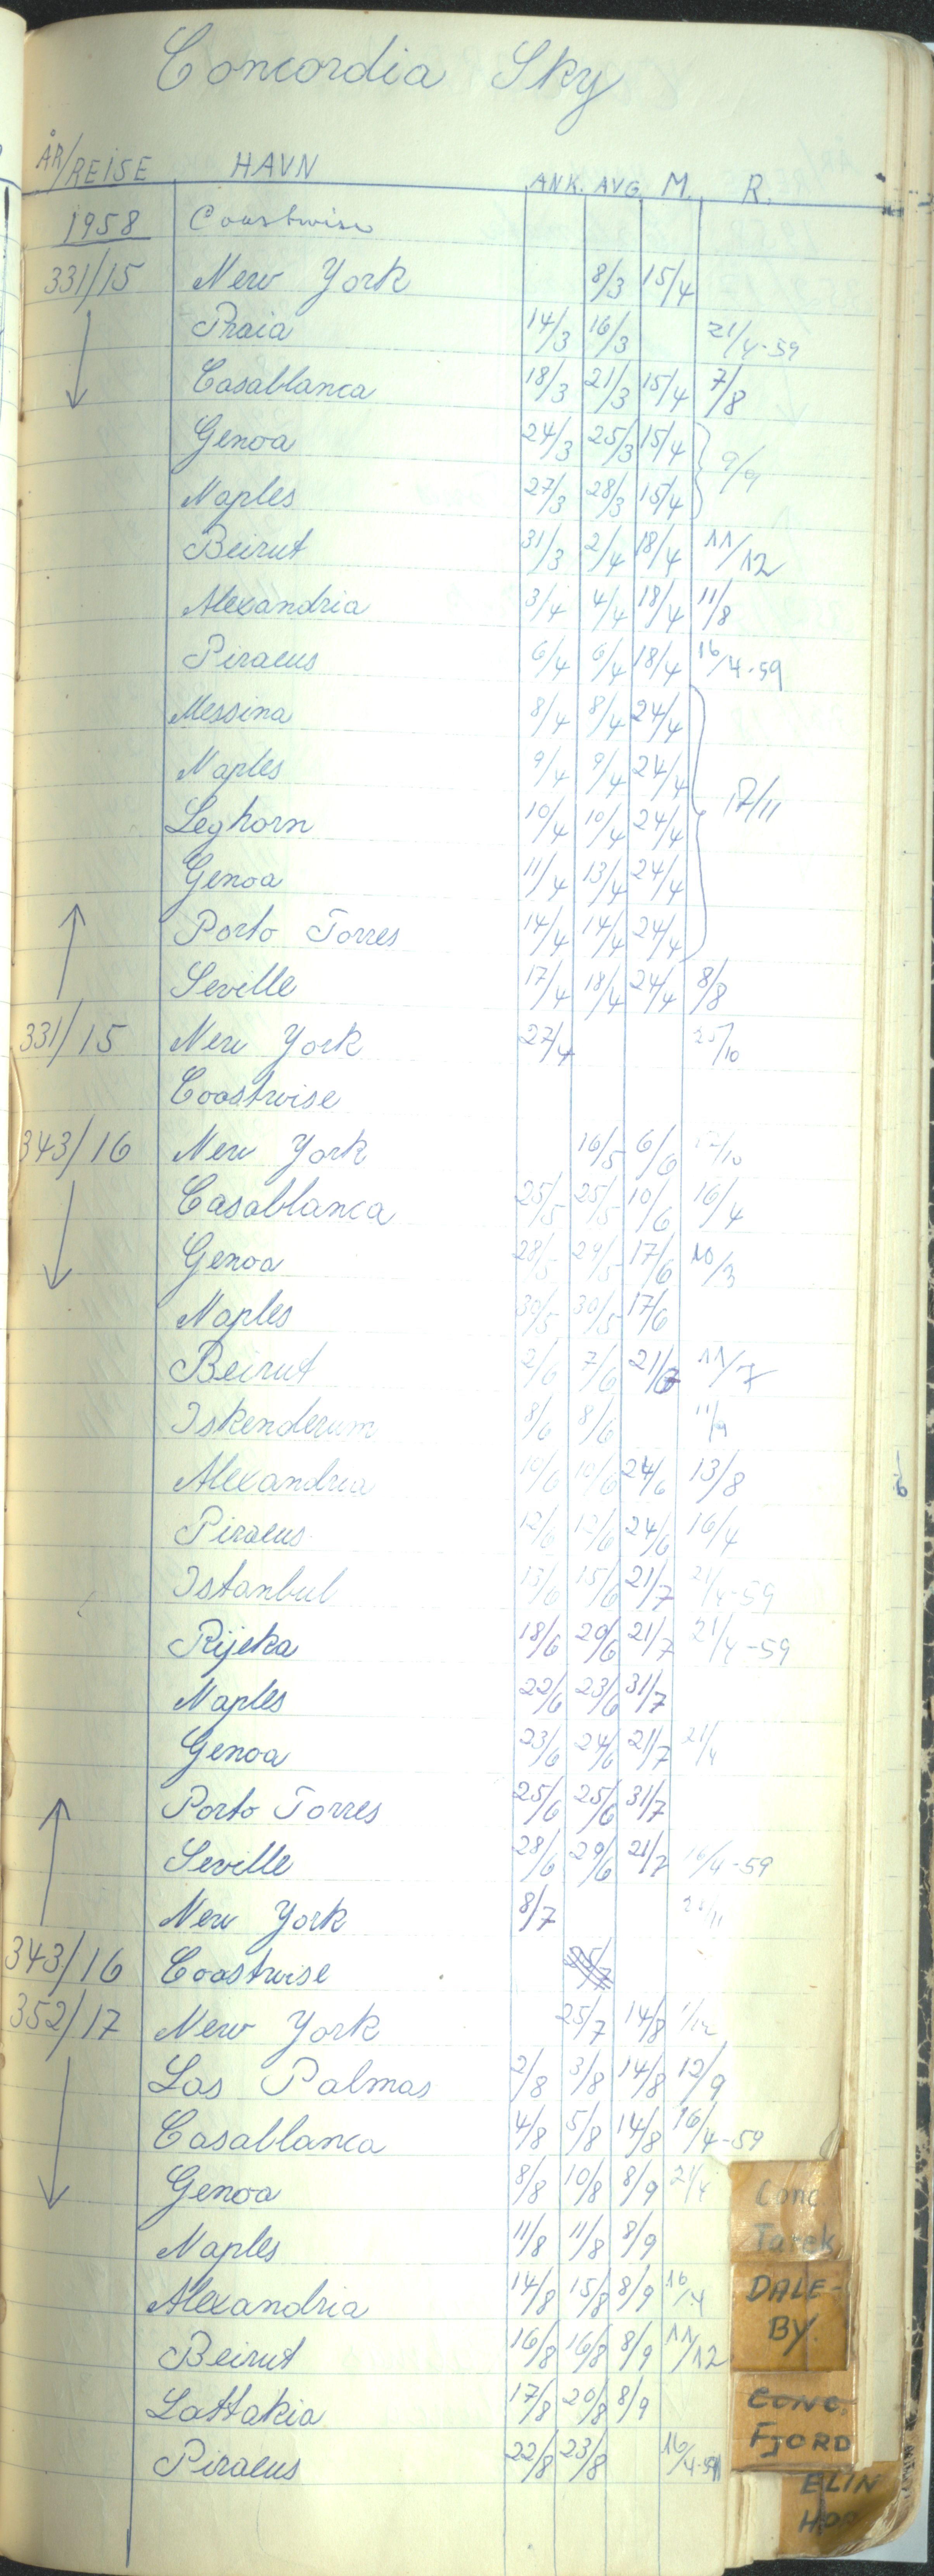 Concordia Sky
ÅR/REISE HAVN ANK. AVG. M. R.
1958 Coastwise
331/15 New York 8/3 15/4
Praia 14/3 16/3 21/4-59
Casablanca 18/3 21/3 15/4 7/8
Genoa 24/3 25/3 15/4
Naples 27/3 28/3 15/4 9/9
Beirut 31/3 2/4 18/4 11/12
Alexandria 3/4 4/4 18/4 11/8
Piraeus 6/4 6/4 18/4 16/4-59
Messina 8/4 8/4 24/4
Naples 9/4 9/4 24/4
Leghorn 10/4 10/4 24/4 17/11
Genoa 11/4 13/4 24/4
Porto Torres 14/4 14/4 24/4
Seville 17/4 18/4 24/4 8/8
331/15 New York 27/4 25/10
Coastwise
343/16 New York 16/5 6/6
Casablanca 25/5 25/5 10/6 16/4
Genoa 28/5 29/5 17/6 10/3
Naples 30/5 30/5 17/6
Beirut 2/6 7/6 21/7 11/7
Iskenderum 8/6 8/6 11/9
Alexandria 10/6 10/6 24/6 13/8
Piraeus 12/6 12/6 24/6 16/4
Istanbul 13/6 15/6 21/7 21/4-59
Rijeka 18/6 20/6 21/7 21/4-59
Naples 22/6 23/6 31/7
Genoa 23/6 24/6 21/7 21/4
Porto Torres 25/6 25/6 31/7
Seville 28/6 29/6 21/7 16/4-59
New York 8/7
343/16 Coastwise 25/7
352/17 New York 25/7 14/8 1/12
Las Palmas 2/8 3/8 14/8 12/9
Casablanca 4/8 5/8 14/8 16/4-59
Genoa 8/8 10/8 8/9 21/4
Naples 11/8 11/8 8/9
Alexandria 14/8 15/8 8/9 16/4
Beirut 16/8 16/8 8/9 11/12
Lattakia 17/8 20/8 8/9
Piraeus 22/8 23/8 16/4-59
Conc
Tarek
DALE-
BY.
CONC.
FJORD
ELIN
HOR